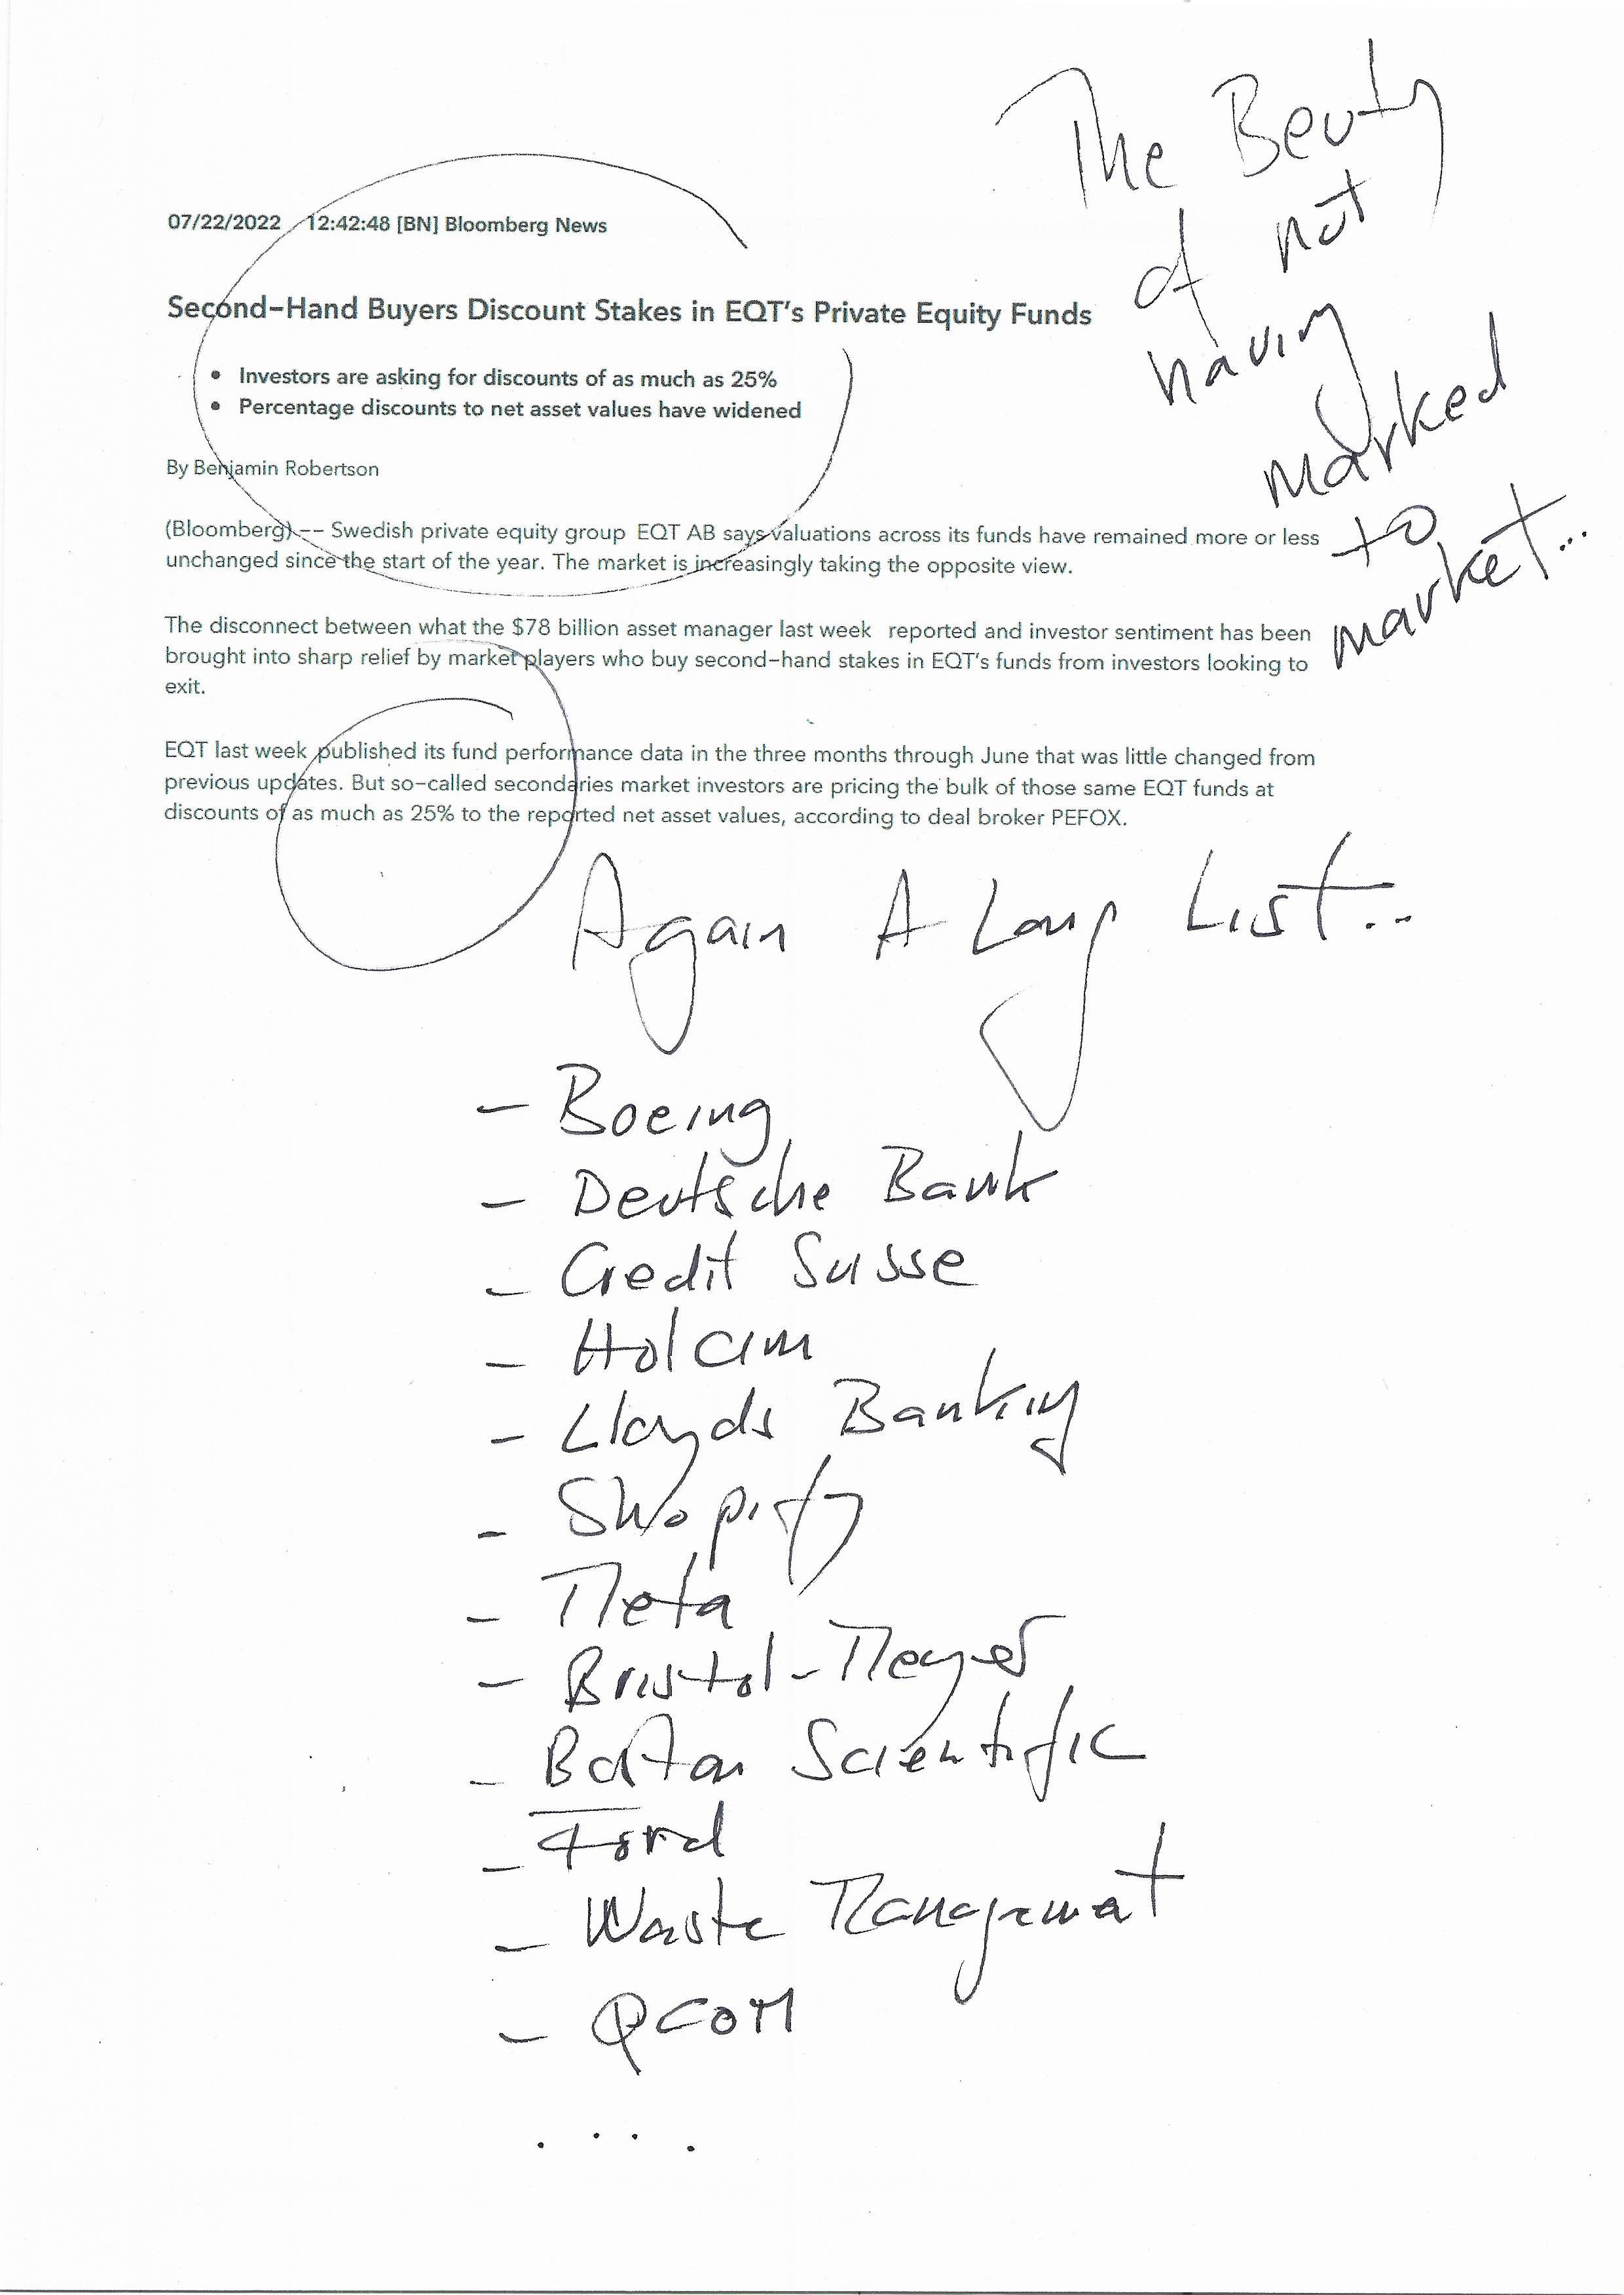 The Beuty
of not
having
marked
to
market...
07/22/2022 12:42:48 [BN] Bloomberg News
Second-Hand Buyers Discount Stakes in EQT's Private Equity Funds
• Investors are asking for discounts of as much as 25%
• Percentage discounts to net asset values have widened
By Benjamin Robertson
(Bloomberg) -- Swedish private equity group EQT AB says valuations across its funds have remained more or less
unchanged since the start of the year. The market is increasingly taking the opposite view.
The disconnect between what the $78 billion asset manager last week reported and investor sentiment has been
brought into sharp relief by market players who buy second-hand stakes in EQT's funds from investors looking to
exit.
EQT last week published its fund performance data in the three months through June that was little changed from
previous updates. But so-called secondaries market investors are pricing the bulk of those same EQT funds at
discounts of as much as 25% to the reported net asset values, according to deal broker PEFOX.
Again A Long List...
- Boeing
- Deutsche Bank
- Credit Suisse
- Holcim
- Lloyds Banking
- Shopify
- Meta
- Bristol-Meyers
- Boston Scientific
- Ford
- Waste Management
- QCOM
....